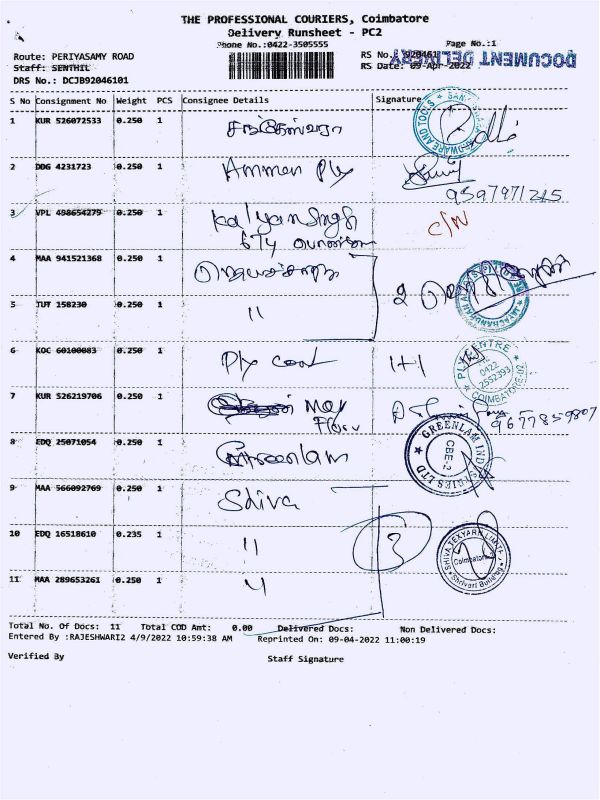 THE PROFESSIONAL COURIERS, Coimbatore
Delivery Runsheet - PC2
Phone No.:0422-3505555
Page No.:1
Route: PERIYASAMY ROAD
RS No.: 920461
DOCUMENT DELIVERY
Staff: SENTHIL
RS Date: 09-Apr-2022
DRS No.: DCJB92046101
S No Consignment No Weight PCS Consignee Details Signature
1 KUR 526072533 0.250 1
HARDWARE AND TOOLS
2 DDG 4231723 0.250 1 Ammen Ply
9597971215
3 VPL 498654279 0.250 1 Kalyansingh
C/N
4 MAA 941521368 0.250 1
2
5 TUT 158230 0.250 1 "
6 KOC 60100083 0.250 1 Ply 1+1
PLY CENTRE 0422 2552393 COIMBATORE-02
7 KUR 526219706 0.250 1
9677859807
8 EDQ 25071054 0.250 1 Greenlam
GREENLAM INDUSTRIES LTD CBE-2
9 MAA 566092769 0.250 1 Shiva
10 EDQ 16518610 0.235 1 " 3
SHIVA TEXYARN LIMITED Coimbatore Shivari Building
11 MAA 289653261 0.250 1 "
Total No. Of Docs: 11 Total COD Amt: 0.00 Delivered Docs: Non Delivered Docs:
Entered By :RAJESHWARI2 4/9/2022 10:59:38 AM Reprinted On: 09-04-2022 11:00:19
Verified By Staff Signature